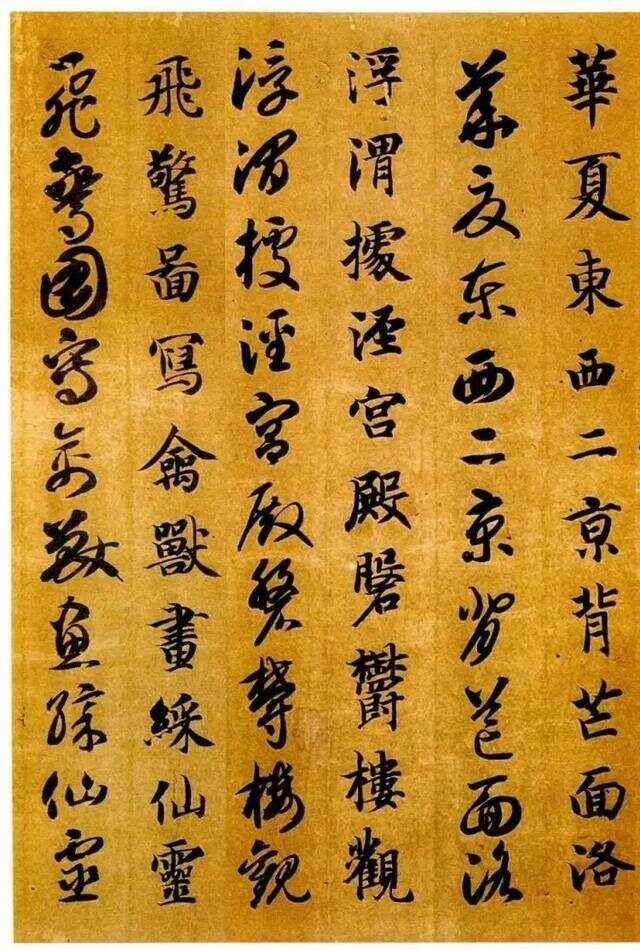 華夏東西二京背芒面洛
華夏東西二京背芒面洛
浮渭據涇宮殿磐鬱樓觀
浮渭據涇宮殿磐鬱樓觀
飛驚圖寫禽獸畫綵仙靈
飛驚圖寫禽獸畫綵仙靈